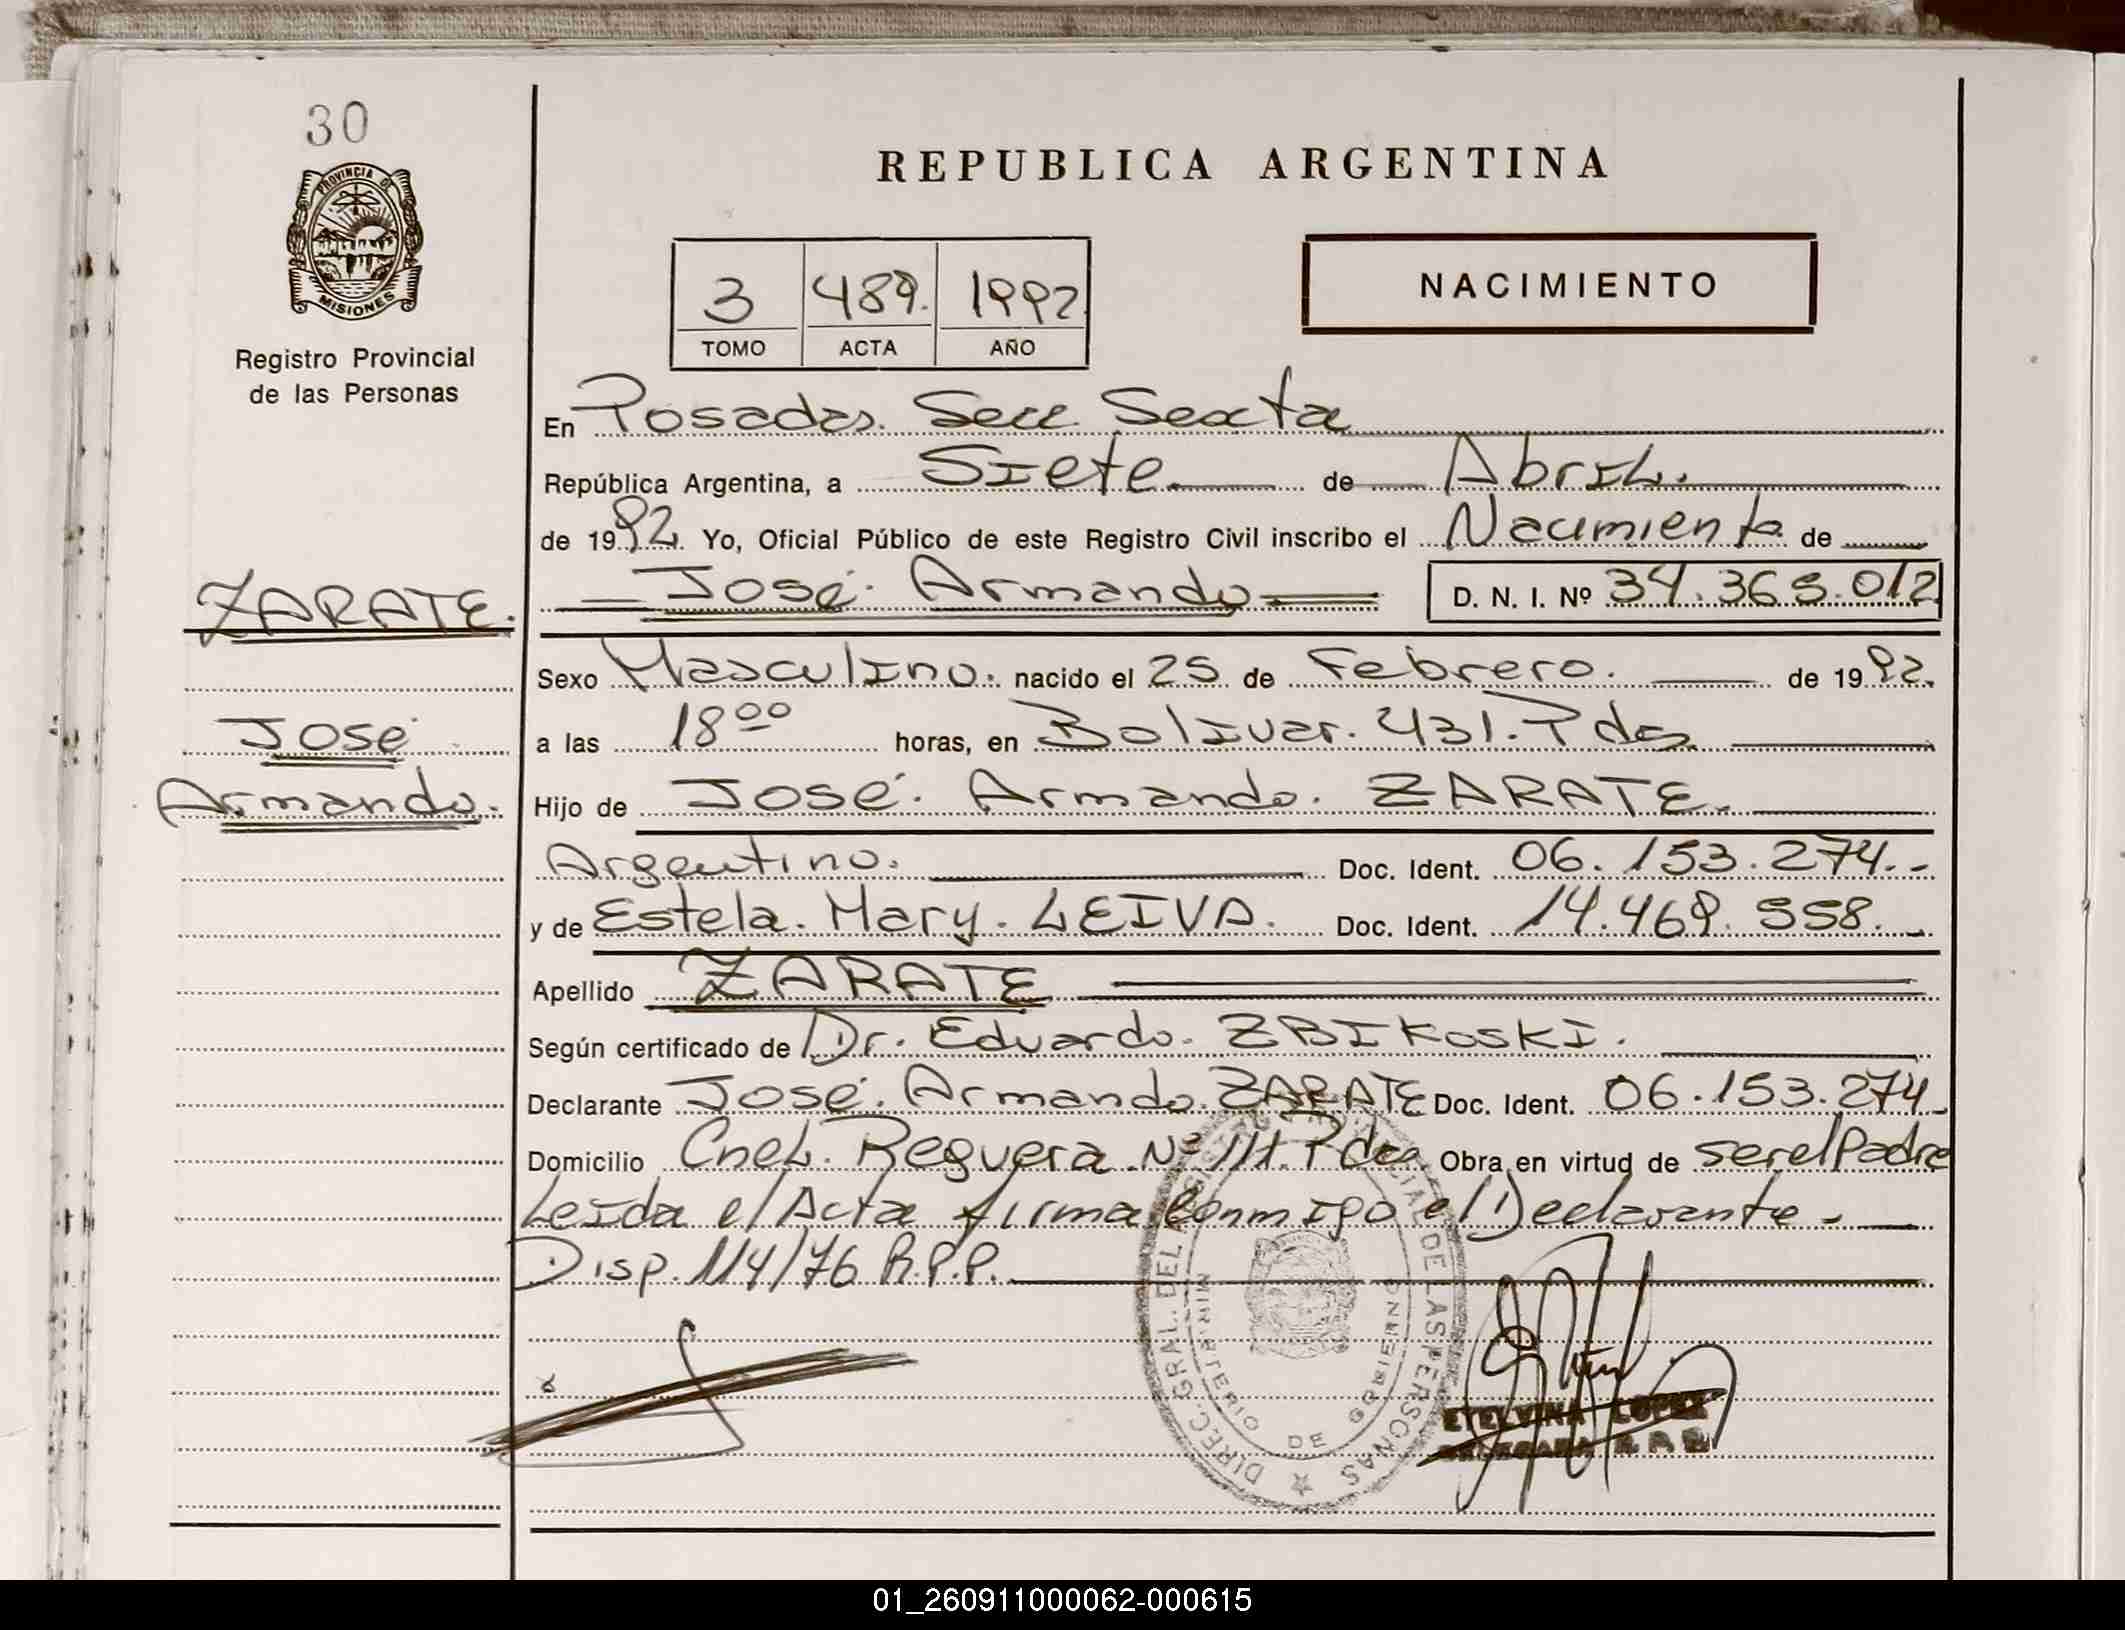 30
PROVINCIA DE
MISIONES
Registro Provincial
de las Personas
REPUBLICA ARGENTINA
3 489. 1992
TOMO ACTA AÑO
NACIMIENTO
En Posadas. Secc Sexta
República Argentina, a Siete de Abril.
de 1992. Yo, Oficial Público de este Registro Civil inscribo el Nacimiento de
ZARATE. José. Armando D. N. I. Nº 34.365.012
Sexo Masculino. nacido el 25 de Febrero. de 1992.
José a las 18⁰⁰ horas, en Bolivar. 431. Pdas.
Armando. Hijo de José. Armando. ZARATE.
Argentino. Doc. Ident. 06.153.274.-
y de Estela. Mary. LEIVA. Doc. Ident. 14.469.558.-
Apellido ZARATE
Según certificado de Dr. Eduardo. ZBIKOSKI.
Declarante José. Armando. ZARATE Doc. Ident. 06.153.274-
Domicilio Cnel. Reguera Nº 111. Pdas. Obra en virtud de ser el Padre
Leida el Acta firma Conmigo el Declarante.-
Disp. 114/76 R.P.P.
DIREC. GRAL. DEL REGISTRO PROVINCIAL DE LAS PERSONAS
MINISTERIO DE GOBIERNO
ETELVINA LOPEZ
DELEGADA R.P.P.
01_260911000062-000615